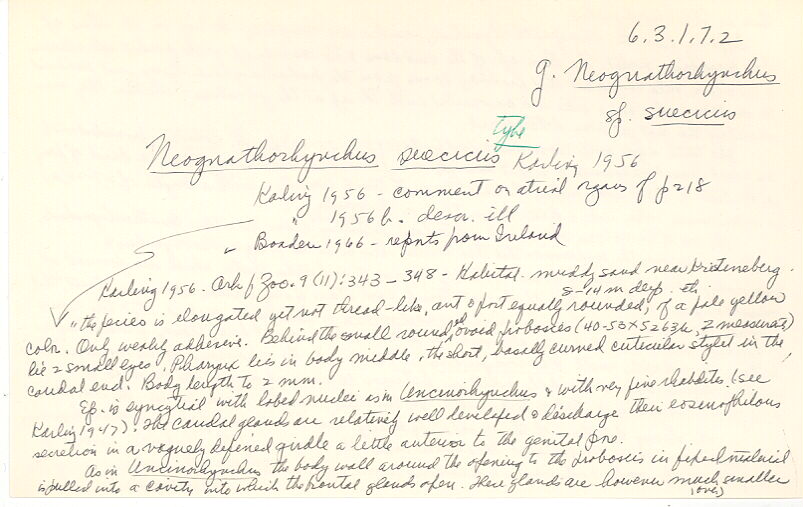 6.3.1.7.2
g. Neognathorhynchus
sp. suecicus
type
Neognathorhynchus suecicus Karling 1956
Karling 1956 - comment on atrial organs fig p 218
" 1956b. descr. ill
" Boaden 1966 - reports from Ireland
Karling 1956. Ark f Zoo. 9 (11): 343 - 348 - Habitat. muddy sand near Kristineberg.
8-14 m deep. etc.
"the species is elongated yet not thread-like, ant & post equally rounded, of a pale yellow
color. Only weakly adhesive. Behind the small round, ovoid proboscis (40-53 x 52 63µ, 2 measured)
lie 2 small eyes. Pharynx lies in body middle, the short, basally curved cuticular stylet in the
caudal end. Body length to 2 mm.
Ep. is syncytial with lobed nuclei as in Uncinorhynchus & with very fine rhabdites (see
Karling 1947). The caudal glands are relatively well developed & discharge their eosinophilous
secretion in a vaguely defined girdle a little anterior to the genital pore.
As in Uncinorhynchus the body wall around the opening to the proboscis in fixed material
is pulled into a cavity into which the frontal glands open. These glands are however much smaller
(over)